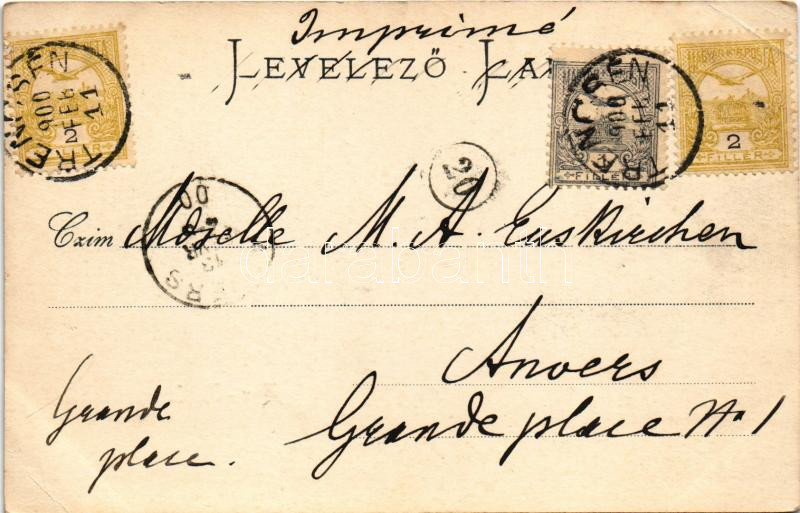 Imprimé
LEVELEZŐ LA
TRENCSÉN
900
FEB
11
2
TRENCSÉN
900
FEB
11
FILLÉR
MAGYAR KIR. POSTA
2
FILLÉR
20
Czim Mdselle M. A. Euskirchen
ERS
13
00
darabanth
Anvers
Grande place No 1
Grande
place.